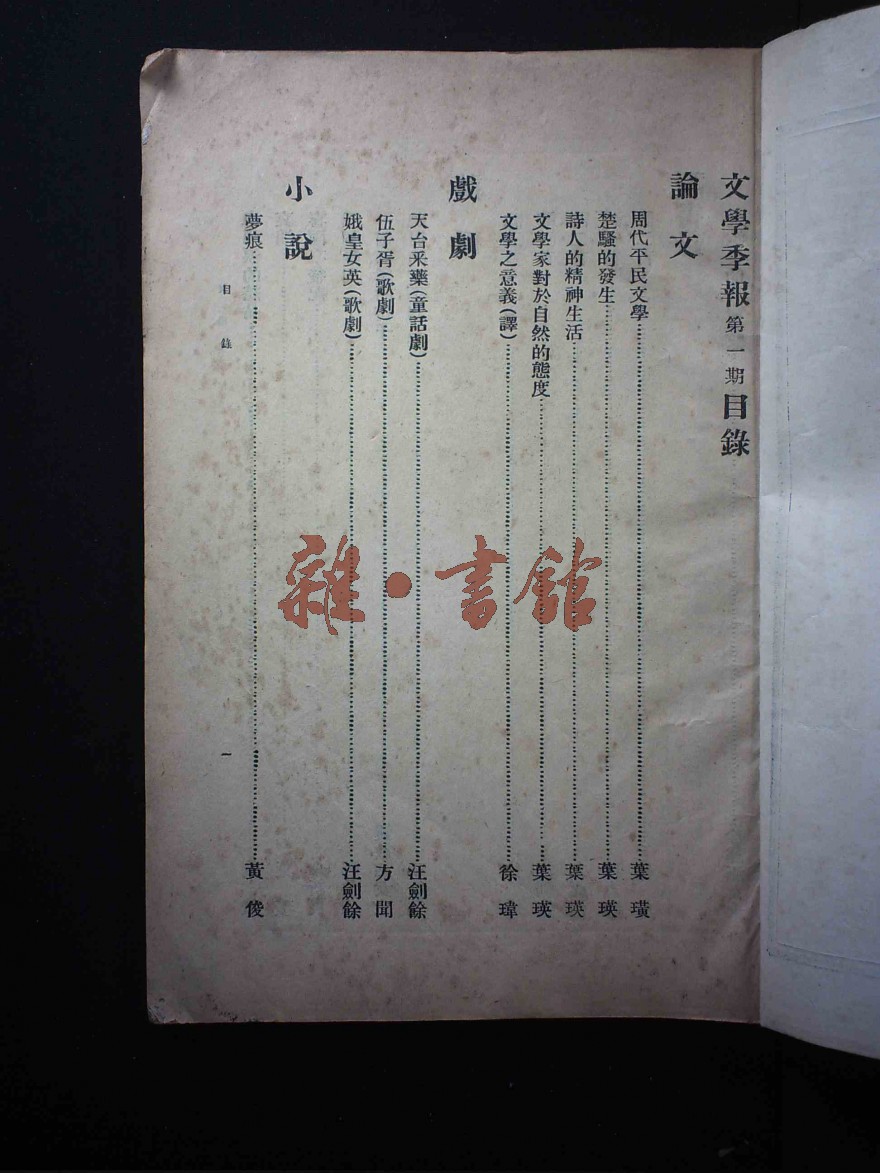 文學季報第一期目錄
論文
周代平民文學……葉璜
楚騷的發生……葉瑛
詩人的精神生活……葉瑛
文學家對於自然的態度……葉瑛
文學之意義(譯)……徐瑋
戲劇
天台釆藥(童話劇)……汪劍餘
伍子胥(歌劇)……方聞
娥皇女英(歌劇)……汪劍餘
小說
夢痕……黃俊
目錄
一
雜·書館